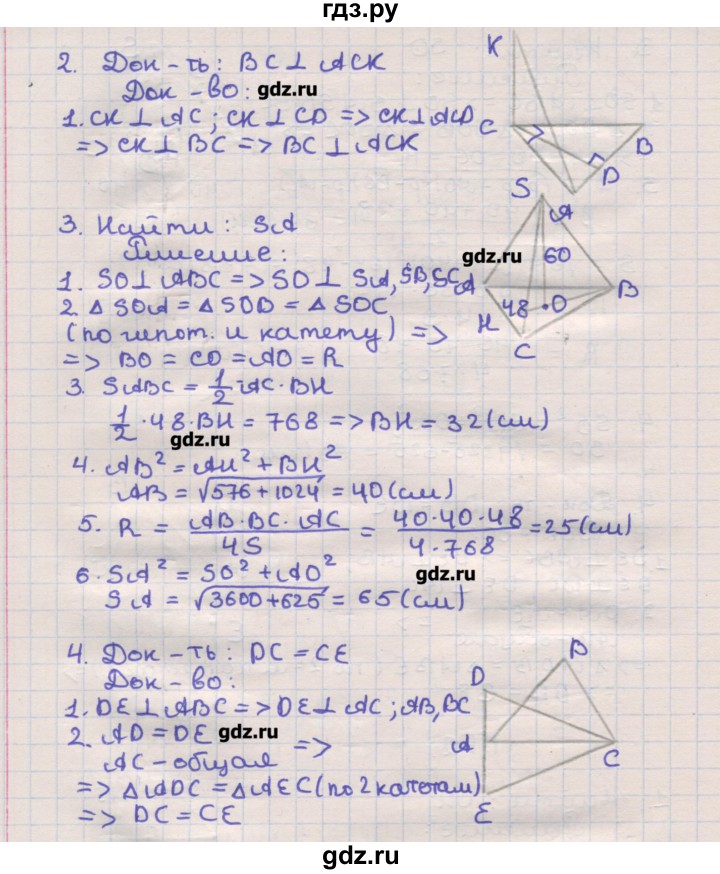 гдз.ру
2. Док-ть: BC ⊥ ACK
Док-во: gdz.ru
1. CK ⊥ AC; CK ⊥ CD => CK ⊥ ACD
=> CK ⊥ BC => BC ⊥ ACK
K
C
B
D
A
3. Найти: SA
Решение:
1. SO ⊥ ABC => SO ⊥ SA, SB, SC
2. △SOA = △SOB = △SOC
(по гипот. и катету) =>
=> BO = CO = AO = R
3. SABC = 1/2 AC · BH
1/2 · 48 · BH = 768 => BH = 32 (см)
gdz.ru
4. AB² = AH² + BH²
AB = √576+1024 = 40 (см)
5. R = AB·BC·AC / 4S = 40·40·48 / 4·768 = 25 (см)
gdz.ru
6. SA² = SO² + AO²
SA = √3600+625 = 65 (см)
S
gdz.ru
60
A
B
48
O
H
C
4. Док-ть: DC = CE
Док-во:
1. DE ⊥ ABC => DE ⊥ AC; AB, BC
2. AD = DE gdz.ru =>
AC - общая
=> △ADC = △AEC (по 2 катетам)
=> DC = CE
B
D
A
C
E
gdz.ru